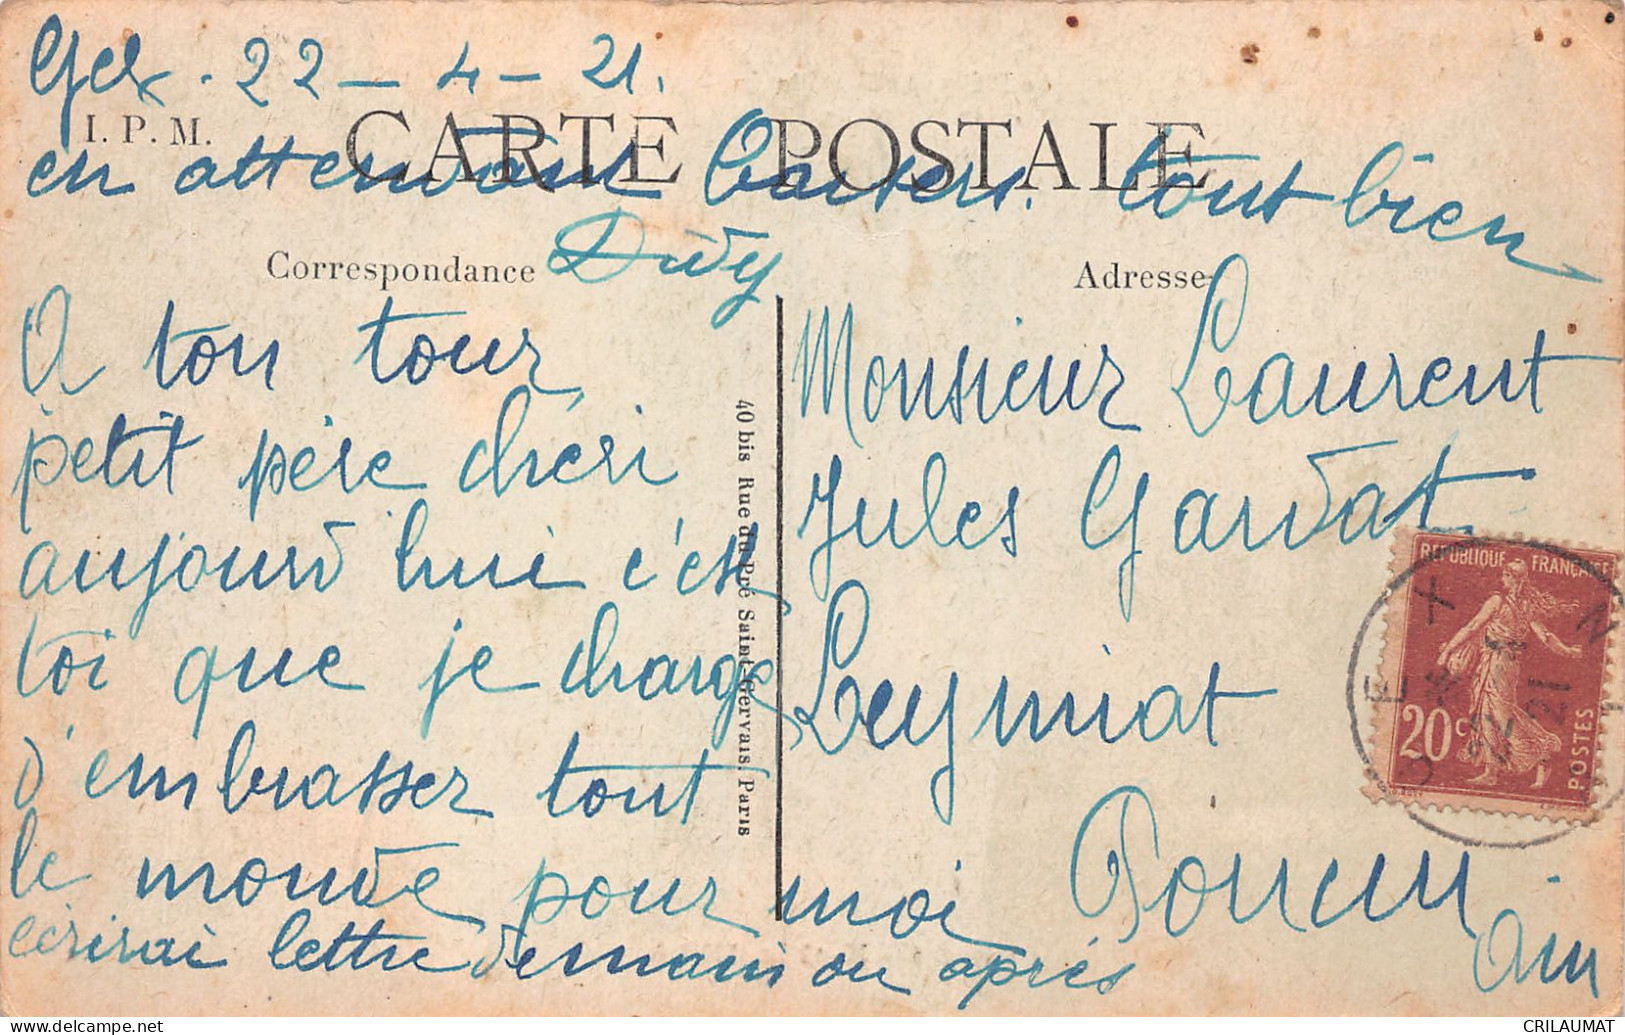 Gex. 22 - 4 - 21.
I. P. M.
CARTE POSTALE
en attendant Baisers. tout bien
Correspondance
Adresse
A ton tour,
petit père chéri
aujourd'hui c'est
toi que je charge
d'embrasser tout
le monde pour moi
écrirai lettre demain ou après
40 bis Rue du Pré Saint-Gervais. Paris
Monsieur Laurent
Jules Gardat
Leymiat
Poncin
Ain
REPUBLIQUE FRANÇAISE
20c
POSTES
GEX
22 4
21
AIN
CRILAUMAT